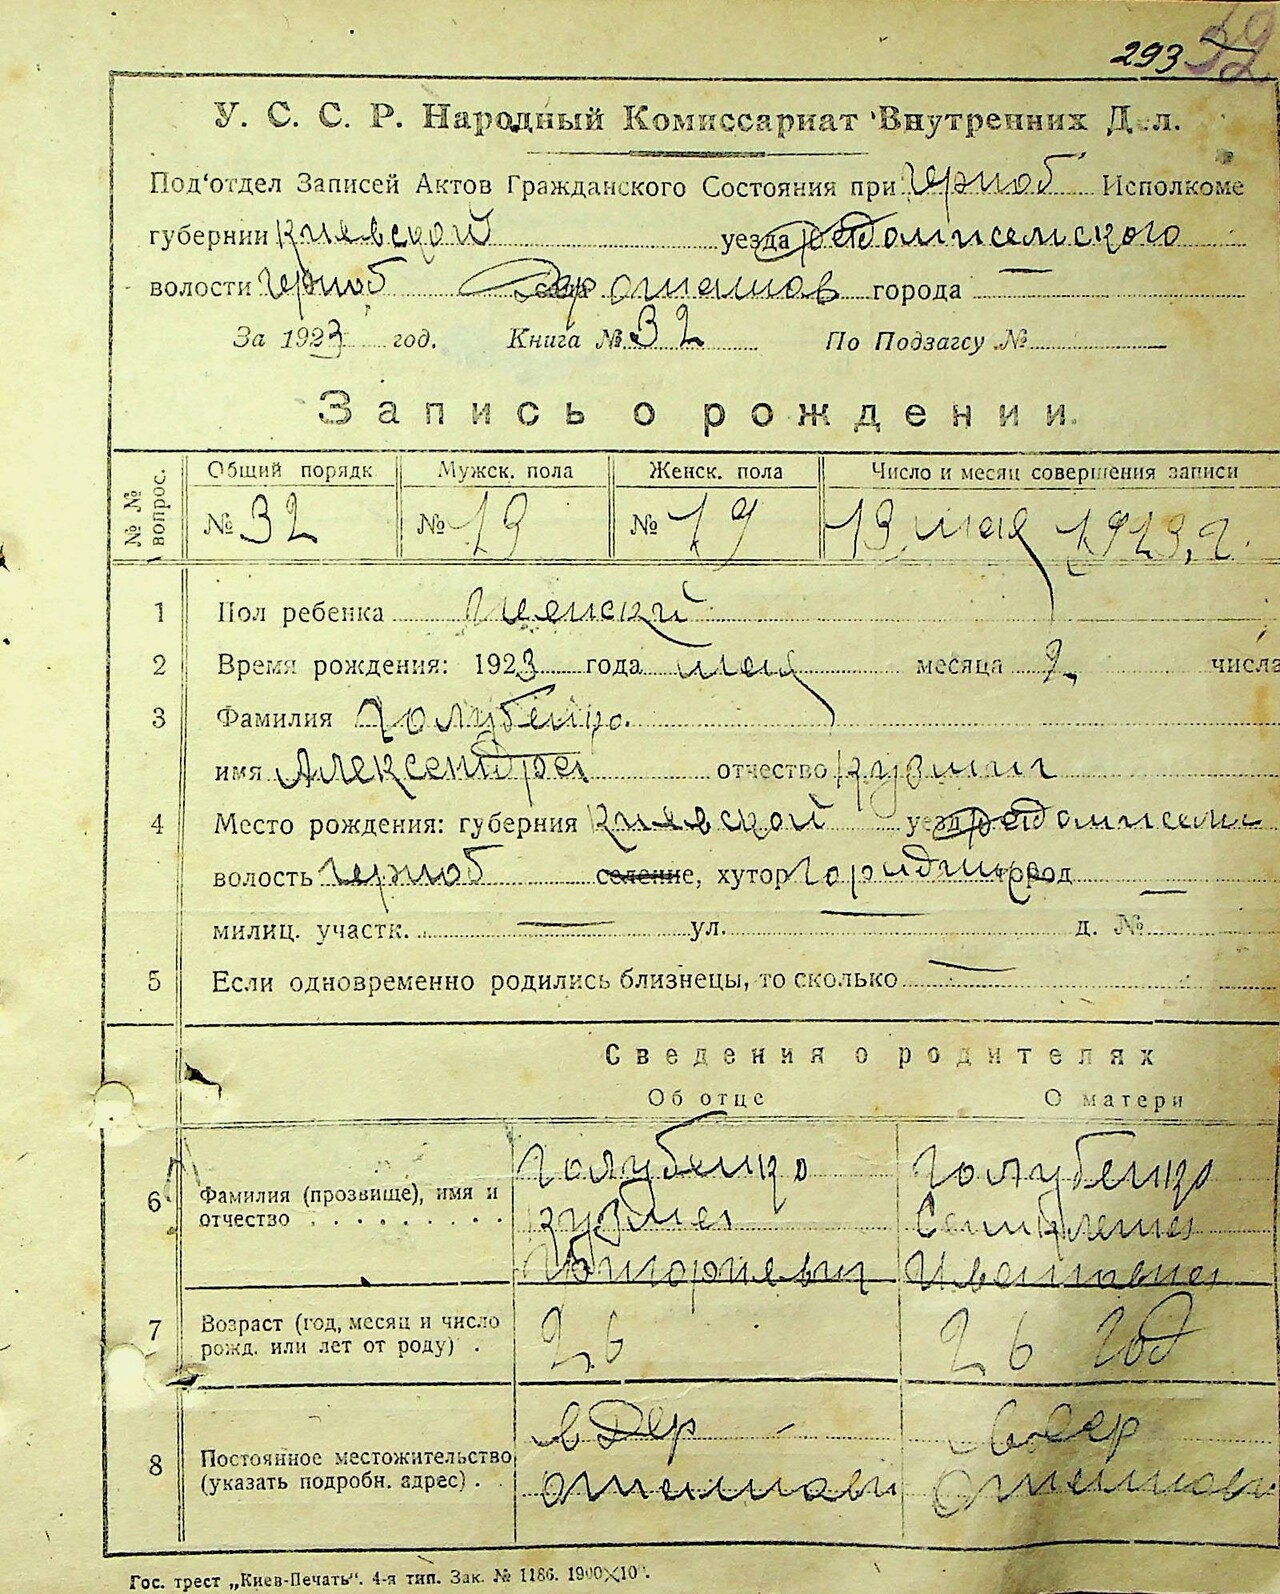 293 32
У. С. С. Р. Народный Комиссариат Внутренних Дел.
Под'отдел Записей Актов Гражданского Состояния при Черноб Исполкоме
губернии Киевской уезда Радомисельского
волости Черноб дер Оташов города —
За 1923 год. Книга № 32 По Подзагсу № —
Запись о рождении.
№ № вопрос. Общий порядк Мужск. пола Женск. пола Число и месяц совершения записи
№ 32 № 13 № 19 13 мая 1923 г.
1 Пол ребенка Женский
2 Время рождения: 1923 года мая месяца 2 числа
3 Фамилия Голубенко.
имя Александра отчество Кузмин
4 Место рождения: губерния Киевской уезд Радомисельс
волость Черноб селение, хутор город —
милиц. участк. — ул. — д. № —
5 Если одновременно родились близнецы, то сколько —
Сведения о родителях
Об отце О матери
6 Фамилия (прозвище), имя и отчество . . . . . . . . . .
Голубенко Голубенко
Кузма
Григориевич Ивановна
7 Возраст (год, месяц и число рожд. или лет от роду) .
26 26 год
8 Постоянное местожительство (указать подробн. адрес) .
в дер в дер
Оташови Оташови
Гос. трест „Киев-Печать". 4-я тип. Зак. № 1186. 1900×10